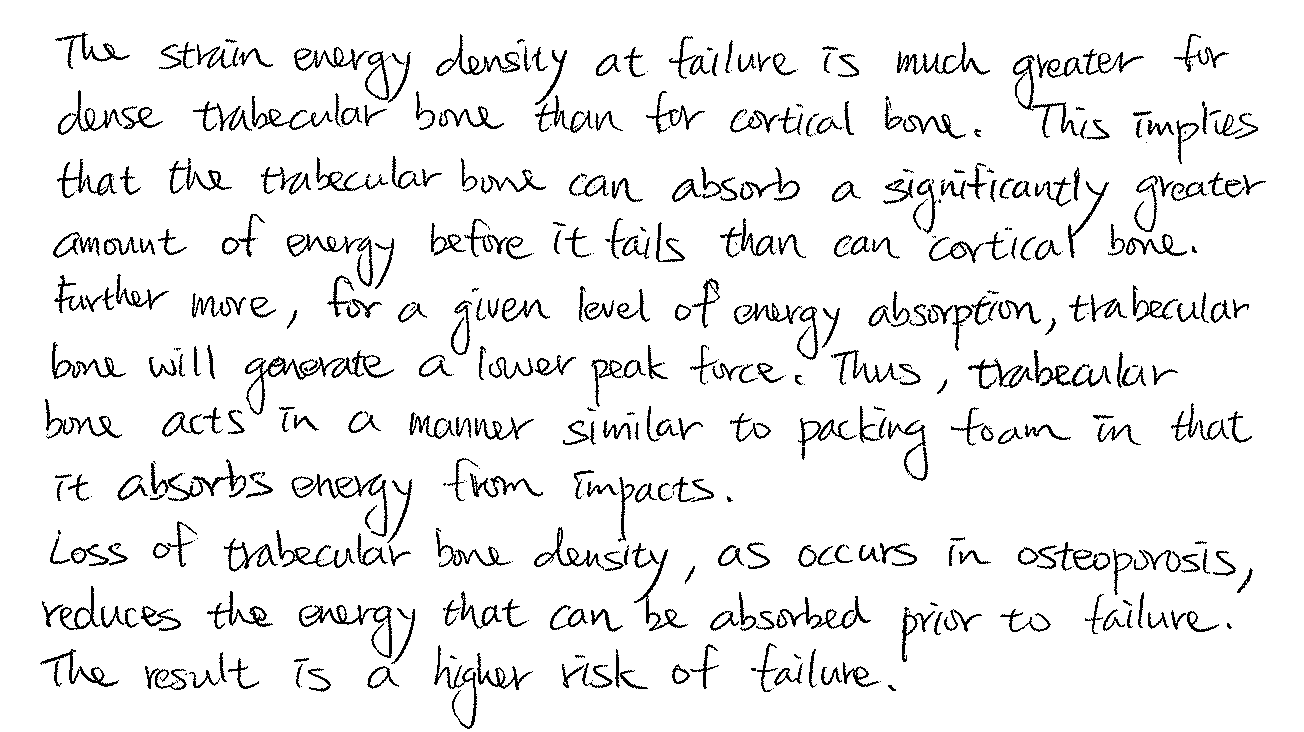 The strain energy density at failure is much greater for
dense trabecular bone than for cortical bone. This implies
that the trabecular bone can absorb a significantly greater
amount of energy before it fails than can cortical bone.
Further more, for a given level of energy absorption, trabecular
bone will generate a lower peak force. Thus, trabecular
bone acts in a manner similar to packing foam in that
it absorbs energy from impacts.
Loss of trabecular bone density, as occurs in osteoporosis,
reduces the energy that can be absorbed prior to failure.
The result is a higher risk of failure.